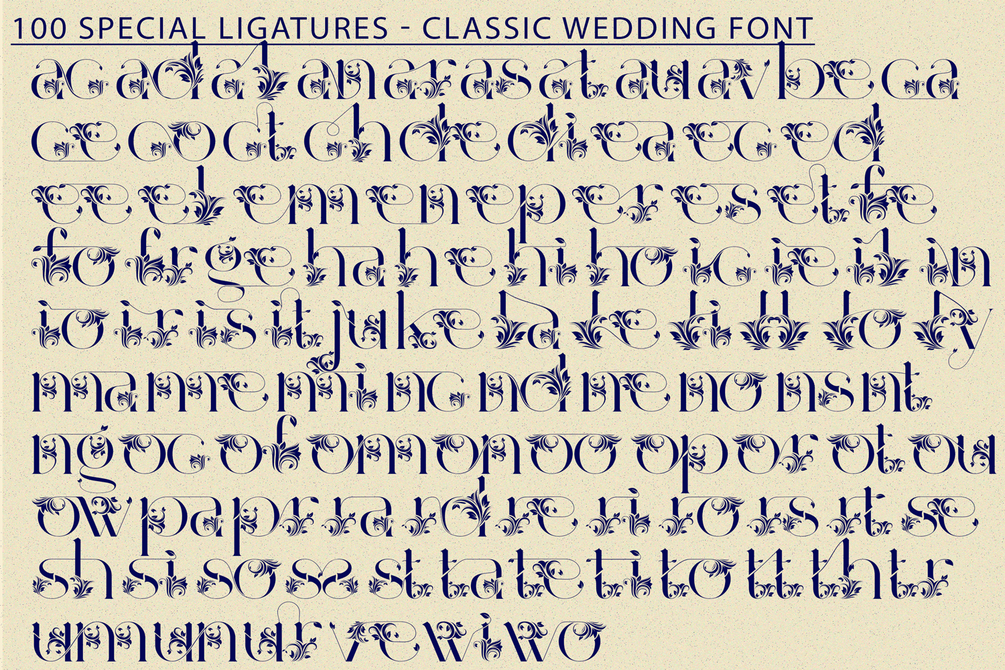 100 SPECIAL LIGATURES - CLASSIC WEDDING FONT
ac ad al an ar as at au av be ca
ce co ct ch de di ea ec ed
ee el em en ep er es et fe
fo fr ge ha he hi ho ic ie il in
io ir is it ju ke la le li ll lo ly
ma me mi nc nd ne no ns nt
ng oc of om on oo op or ot ou
ow pa pr ra rd re ri ro rs rt se
sh si so ss st ta te ti to tt th tr
um un ur ve wi wo